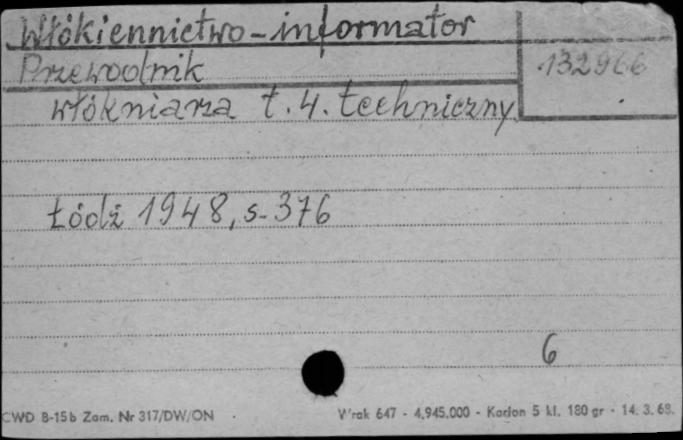 Włókiennictwo - informator
132966
Przewodnik
włókniarza t. 4. techniczny.
Łódź 1948, s. 376
6
CWD B-15b Zam. Nr 317/DW/ON
W rak 647 - 4,945.000 - Karton 5 kl. 180 gr - 14. 3. 68.